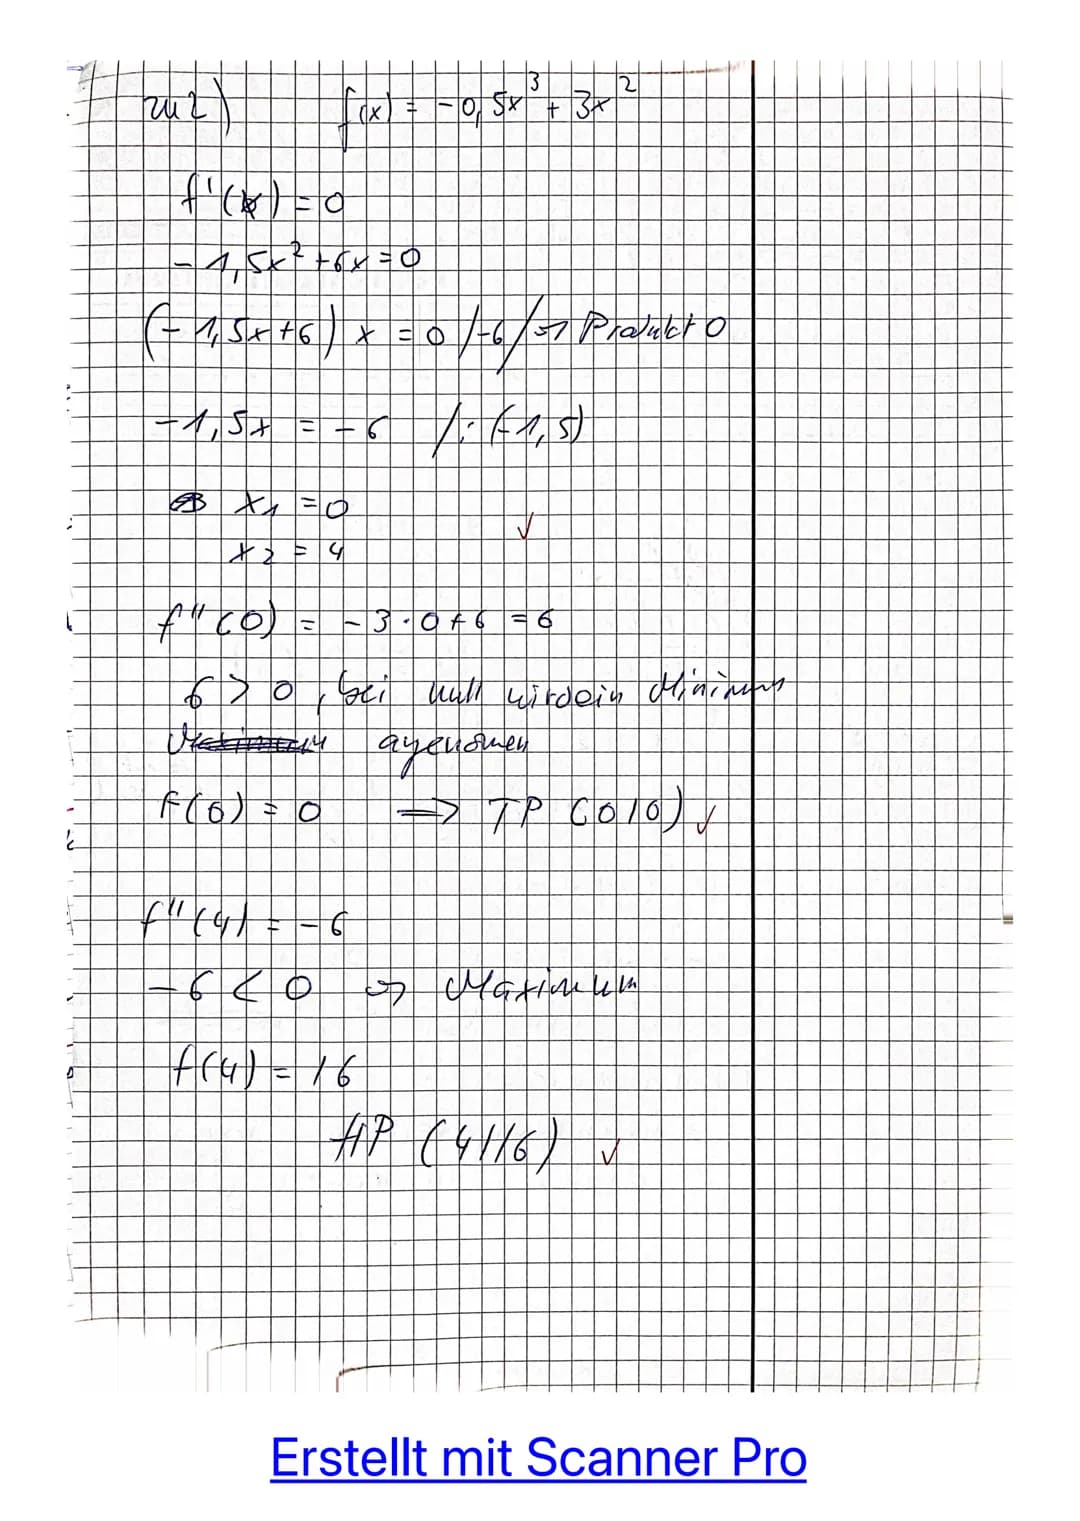 zu 2) f(x) = -0,5x³ + 3x²
f'(x) = 0
-1,5x² + 6x = 0
(-1,5x+6) x = 0 /-6/ => Produkt 0
-1,5x = -6 /: (-1,5)
x₁ = 0
x₂ = 4
f''(0) = -3·0+6 = 6
6 > 0, bei null wird ein Minimum
agenomen
f(0) = 0 => TP (0|0) ✓
f''(4) = -6
-6 < 0 => Maximum
f(4) = 16
HP (4|16) ✓
Erstellt mit Scanner Pro